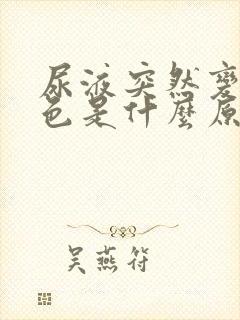 尿液突然變
色是什麼原
吴燕符